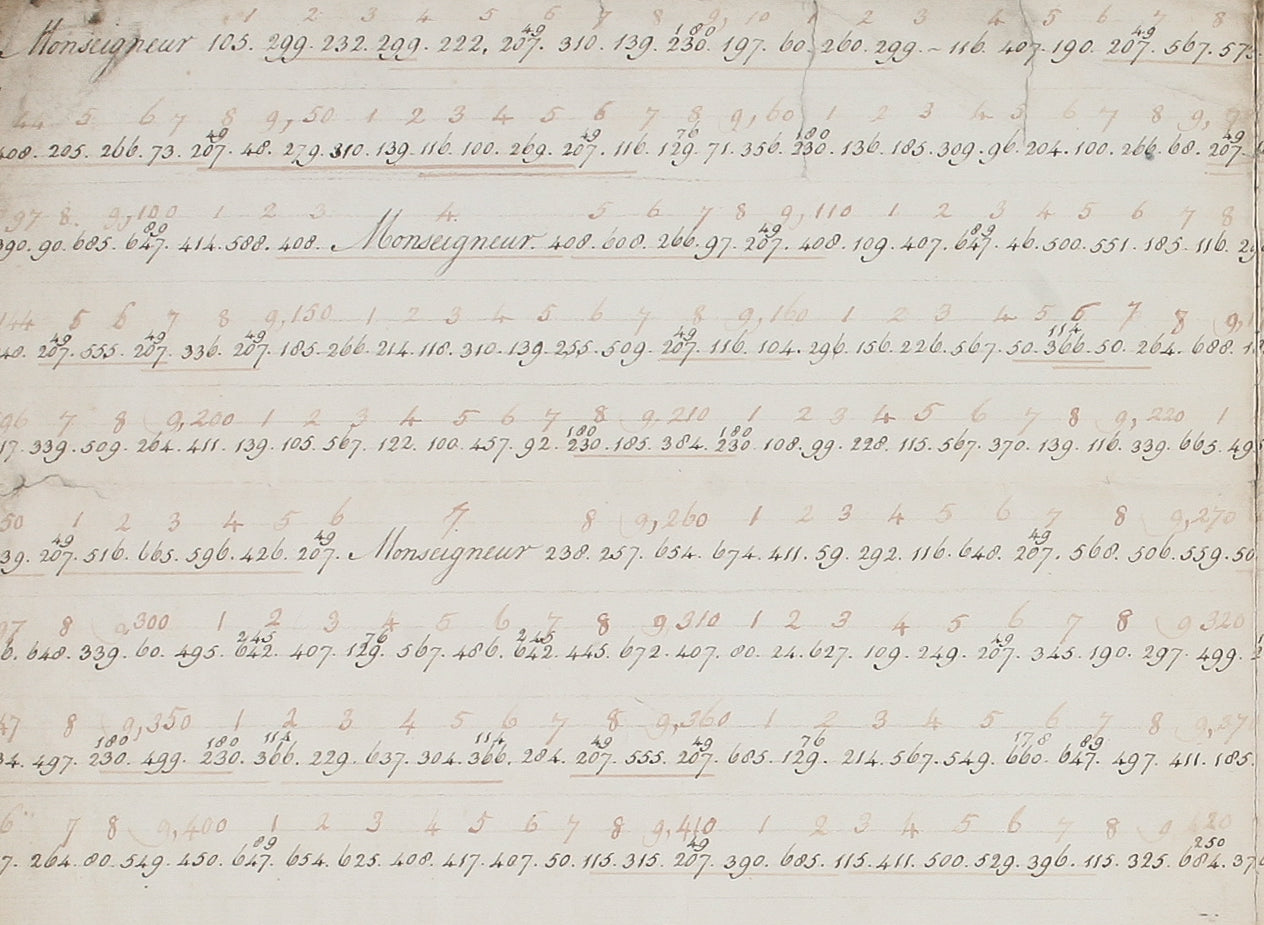 1 2 3 4 5 6 7 8 9, 10 1 2 3 4 5 6 7 8
49 180 49
Monseigneur 105. 299. 232. 299. 222. 207. 310. 139. 230. 197. 60. 260. 299. ~ 116. 407. 190. 207. 567. 575.
44 5 6 7 8 9, 50 1 2 3 4 5 6 7 8 9, 60 1 2 3 4 5 6 7 8 9,
49 49 76 180 49
408. 205. 266. 73. 207. 48. 279. 310. 139. 116. 100. 269. 207. 116. 129. 71. 356. 230. 136. 185. 309. 96. 204. 100. 266. 68. 207.
97 8. 9, 100 1 2 3 4 5 6 7 8 9, 110 1 2 3 4 5 6 7 8
89 49 89
390. 90. 685. 647. 414. 588. 408. Monseigneur. 408. 608. 266. 97. 207. 408. 109. 407. 647. 46. 500. 551. 185. 116.
144 5 6 7 8 9, 150 1 2 3 4 5 6 7 8 9, 160 1 2 3 4 5 6 7 8 9,
49 49 49 49 114
40. 207. 555. 207. 336. 207. 185. 266. 214. 118. 310. 139. 255. 509. 207. 116. 104. 296. 156. 226. 567. 50. 366. 50. 264. 688.
96 7 8 9, 200 1 2 3 4 5 6 7 8 9, 210 1 2 3 4 5 6 7 8 9, 220 1
180 180
17. 339. 509. 264. 411. 139. 105. 567. 122. 100. 457. 92. 230. 185. 384. 230. 108. 99. 228. 115. 567. 370. 139. 116. 339. 665. 495
50 1 2 3 4 5 6 7 8 9, 260 1 2 3 4 5 6 7 8 9, 270
49 49 49
39. 207. 516. 665. 596. 426. 207. Monseigneur 238. 257. 654. 674. 411. 59. 292. 116. 648. 207. 568. 506. 559. 50
97 8 9, 300 1 2 3 4 5 6 7 8 9, 310 1 2 3 4 5 6 7 8 9 320
245 76 245 49
6. 648. 339. 60. 495. 642. 407. 129. 567. 486. 642. 445. 672. 407. 80. 24. 627. 109. 249. 207. 345. 190. 297. 499.
47 8 9, 350 1 2 3 4 5 6 7 8 9, 360 1 2 3 4 5 6 7 8 9, 37
180 180 114 114 49 49 76 178 89
34. 497. 230. 499. 230. 366. 229. 637. 304. 366. 284. 207. 555. 207. 685. 129. 214. 567. 549. 660. 647. 497. 411. 185.
6 7 8 9, 400 1 2 3 4 5 6 7 8 9, 410 1 2 3 4 5 6 7 8 9 420
89 49 250
7. 264. 80. 549. 450. 647. 654. 625. 408. 417. 407. 50. 115. 315. 207. 390. 685. 115. 411. 500. 529. 396. 115. 325. 684. 37